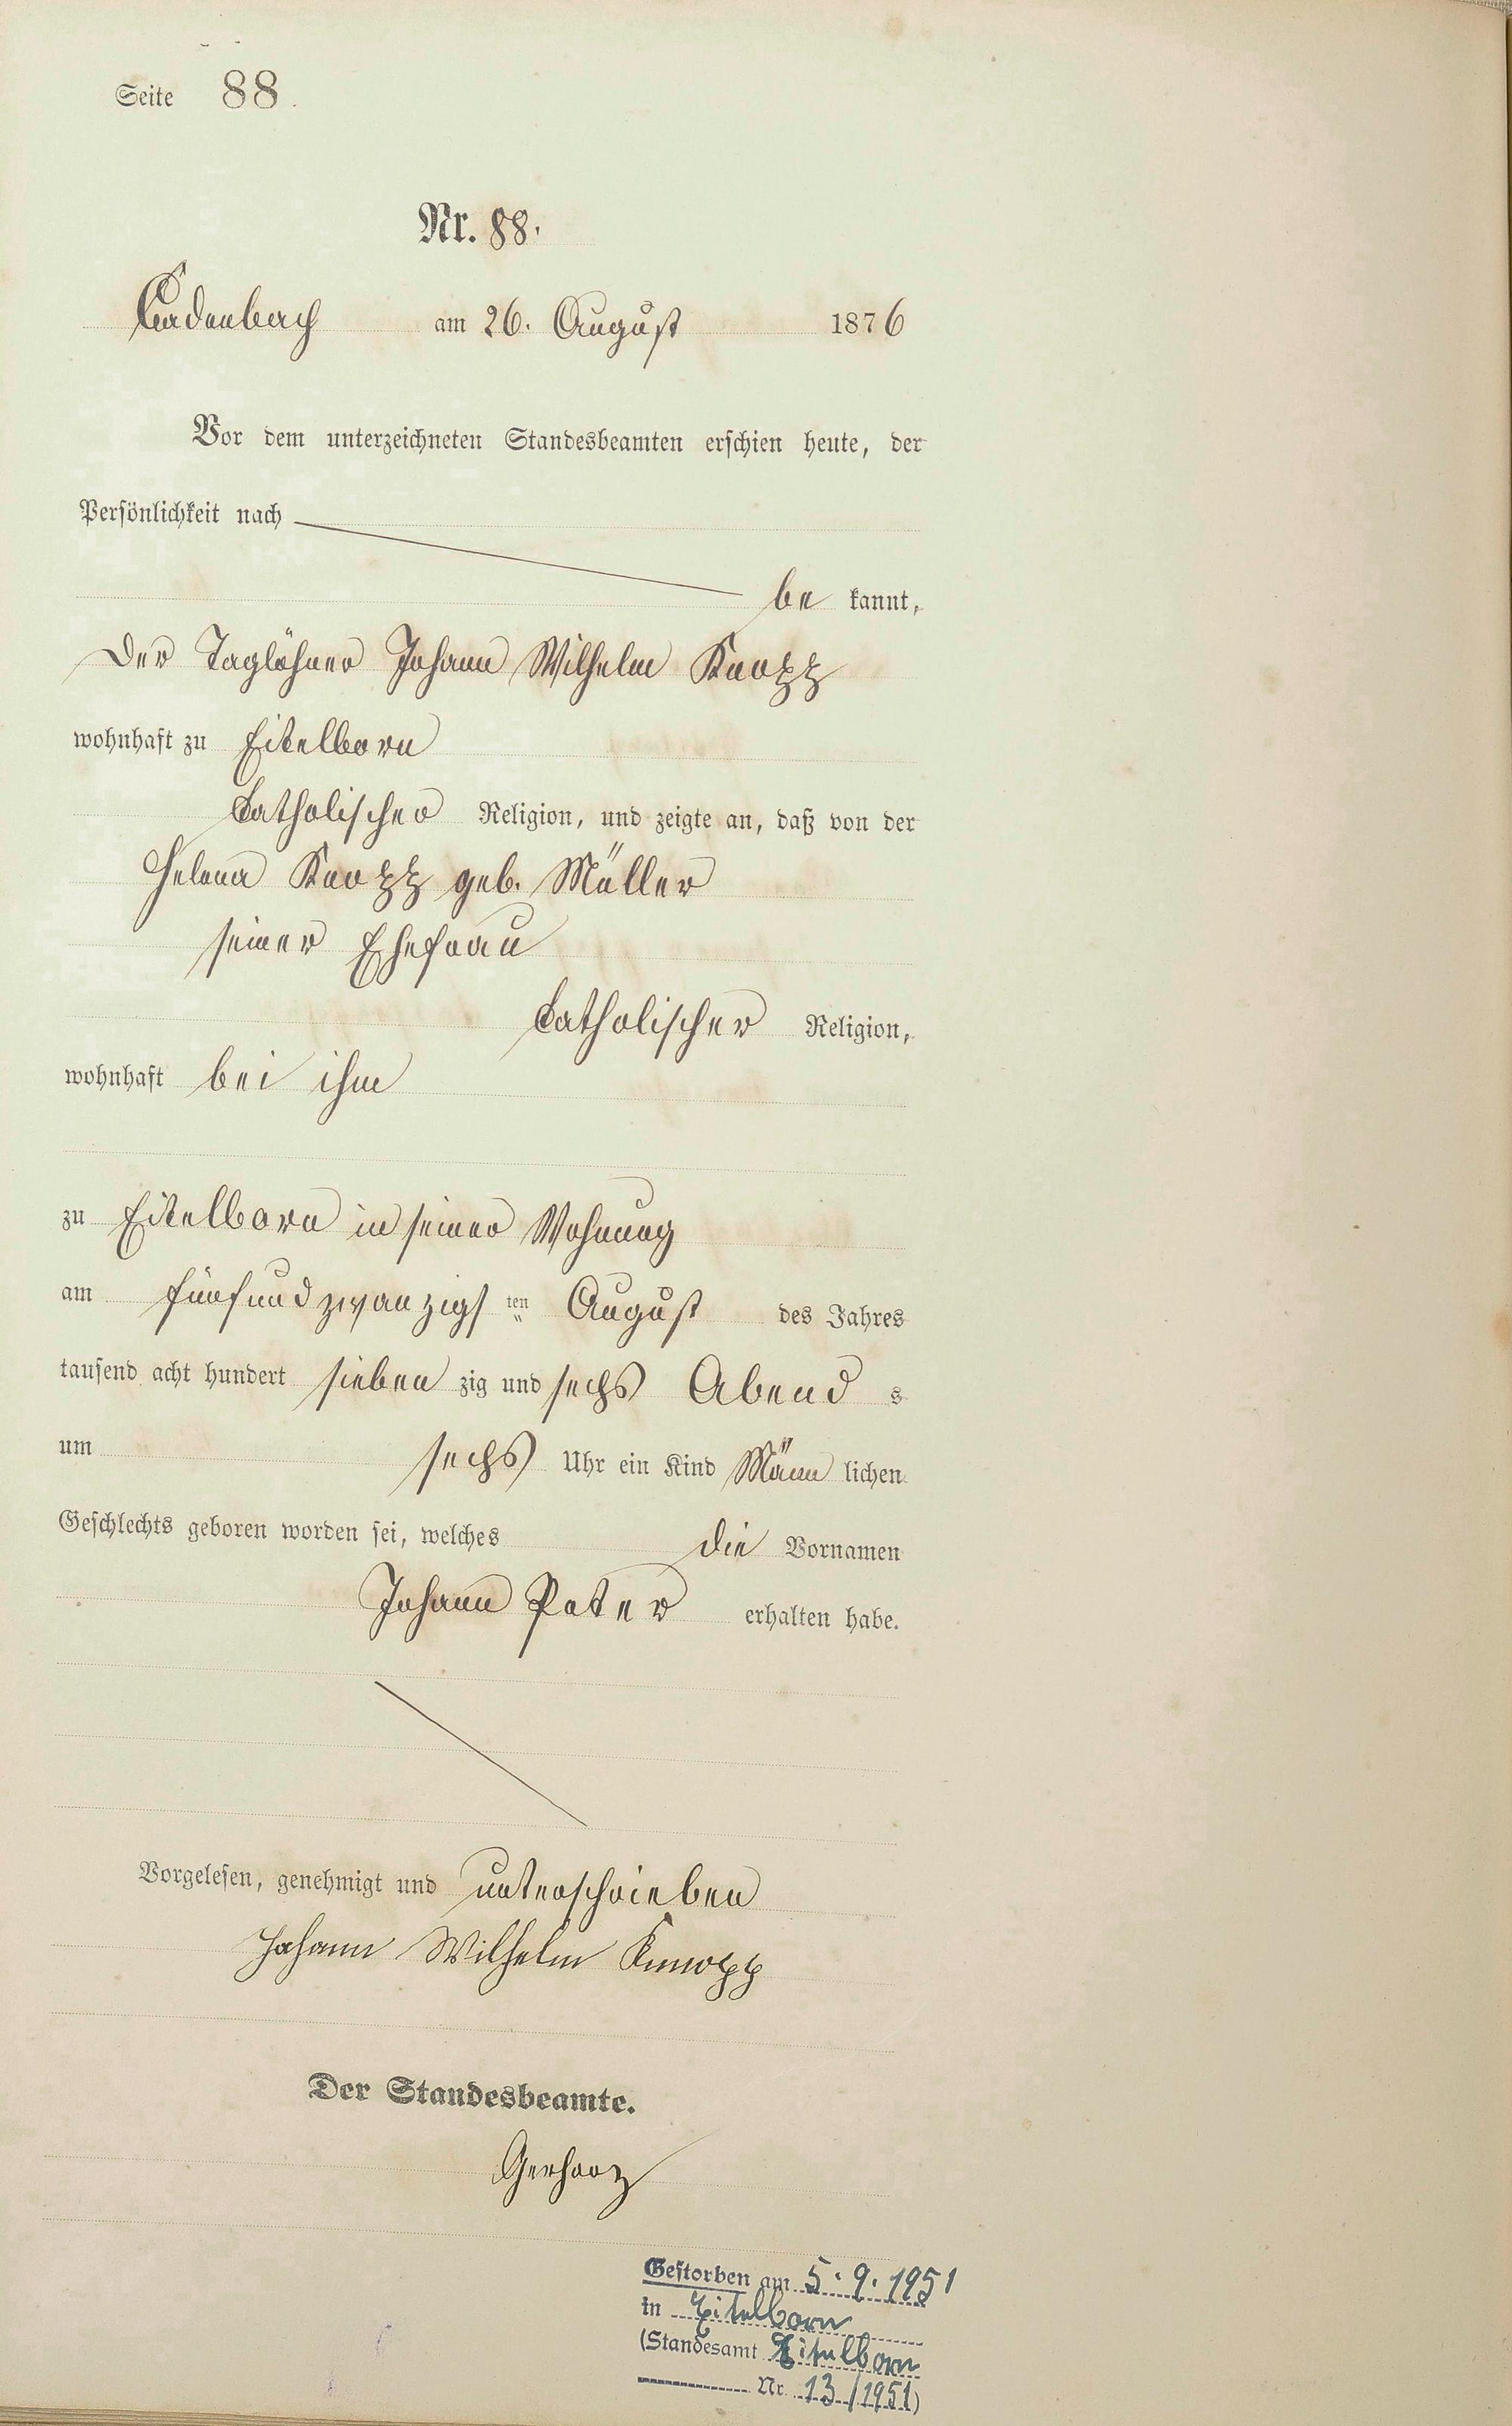 Seite 88.
Nr. 88.
Cadenbach am 26. August 1876
Vor dem unterzeichneten Standesbeamten erschien heute, der
Persönlichkeit nach
be kannt,
der Taglöhner Johann Wilhelm Knopp
wohnhaft zu Eitelborn
katholischer Religion, und zeigte an, daß von der
Helena Knopp geb. Müller
seiner Ehefrau
katholischer Religion,
wohnhaft bei ihm
zu Eitelborn in seiner Wohnung
am fünfundzwanzigs ten August des Jahres
tausend acht hundert sieben zig und sechs Abend s
um sechs Uhr ein Kind Männ lichen
Geschlechts geboren worden sei, welches die Vornamen
Johann Peter erhalten habe.
Vorgelesen, genehmigt und unterschrieben
Johann Wilhelm Knnopp
Der Standesbeamte.
Gerharz
Gestorben am 5.9.1951
in Eitelborn
(Standesamt Eitelborn
Nr. 13/1951)